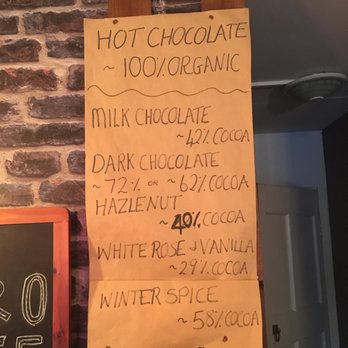 HOT CHOCOLATE
~ 100% ORGANIC
MILK CHOCOLATE
~ 42% COCOA
DARK CHOCOLATE
~ 72% OR ~ 62% COCOA
HAZLENUT
~ 40% COCOA
WHITE ROSE & VANILLA
~ 29% COCOA
WINTER SPICE
~ 58% COCOA
RO